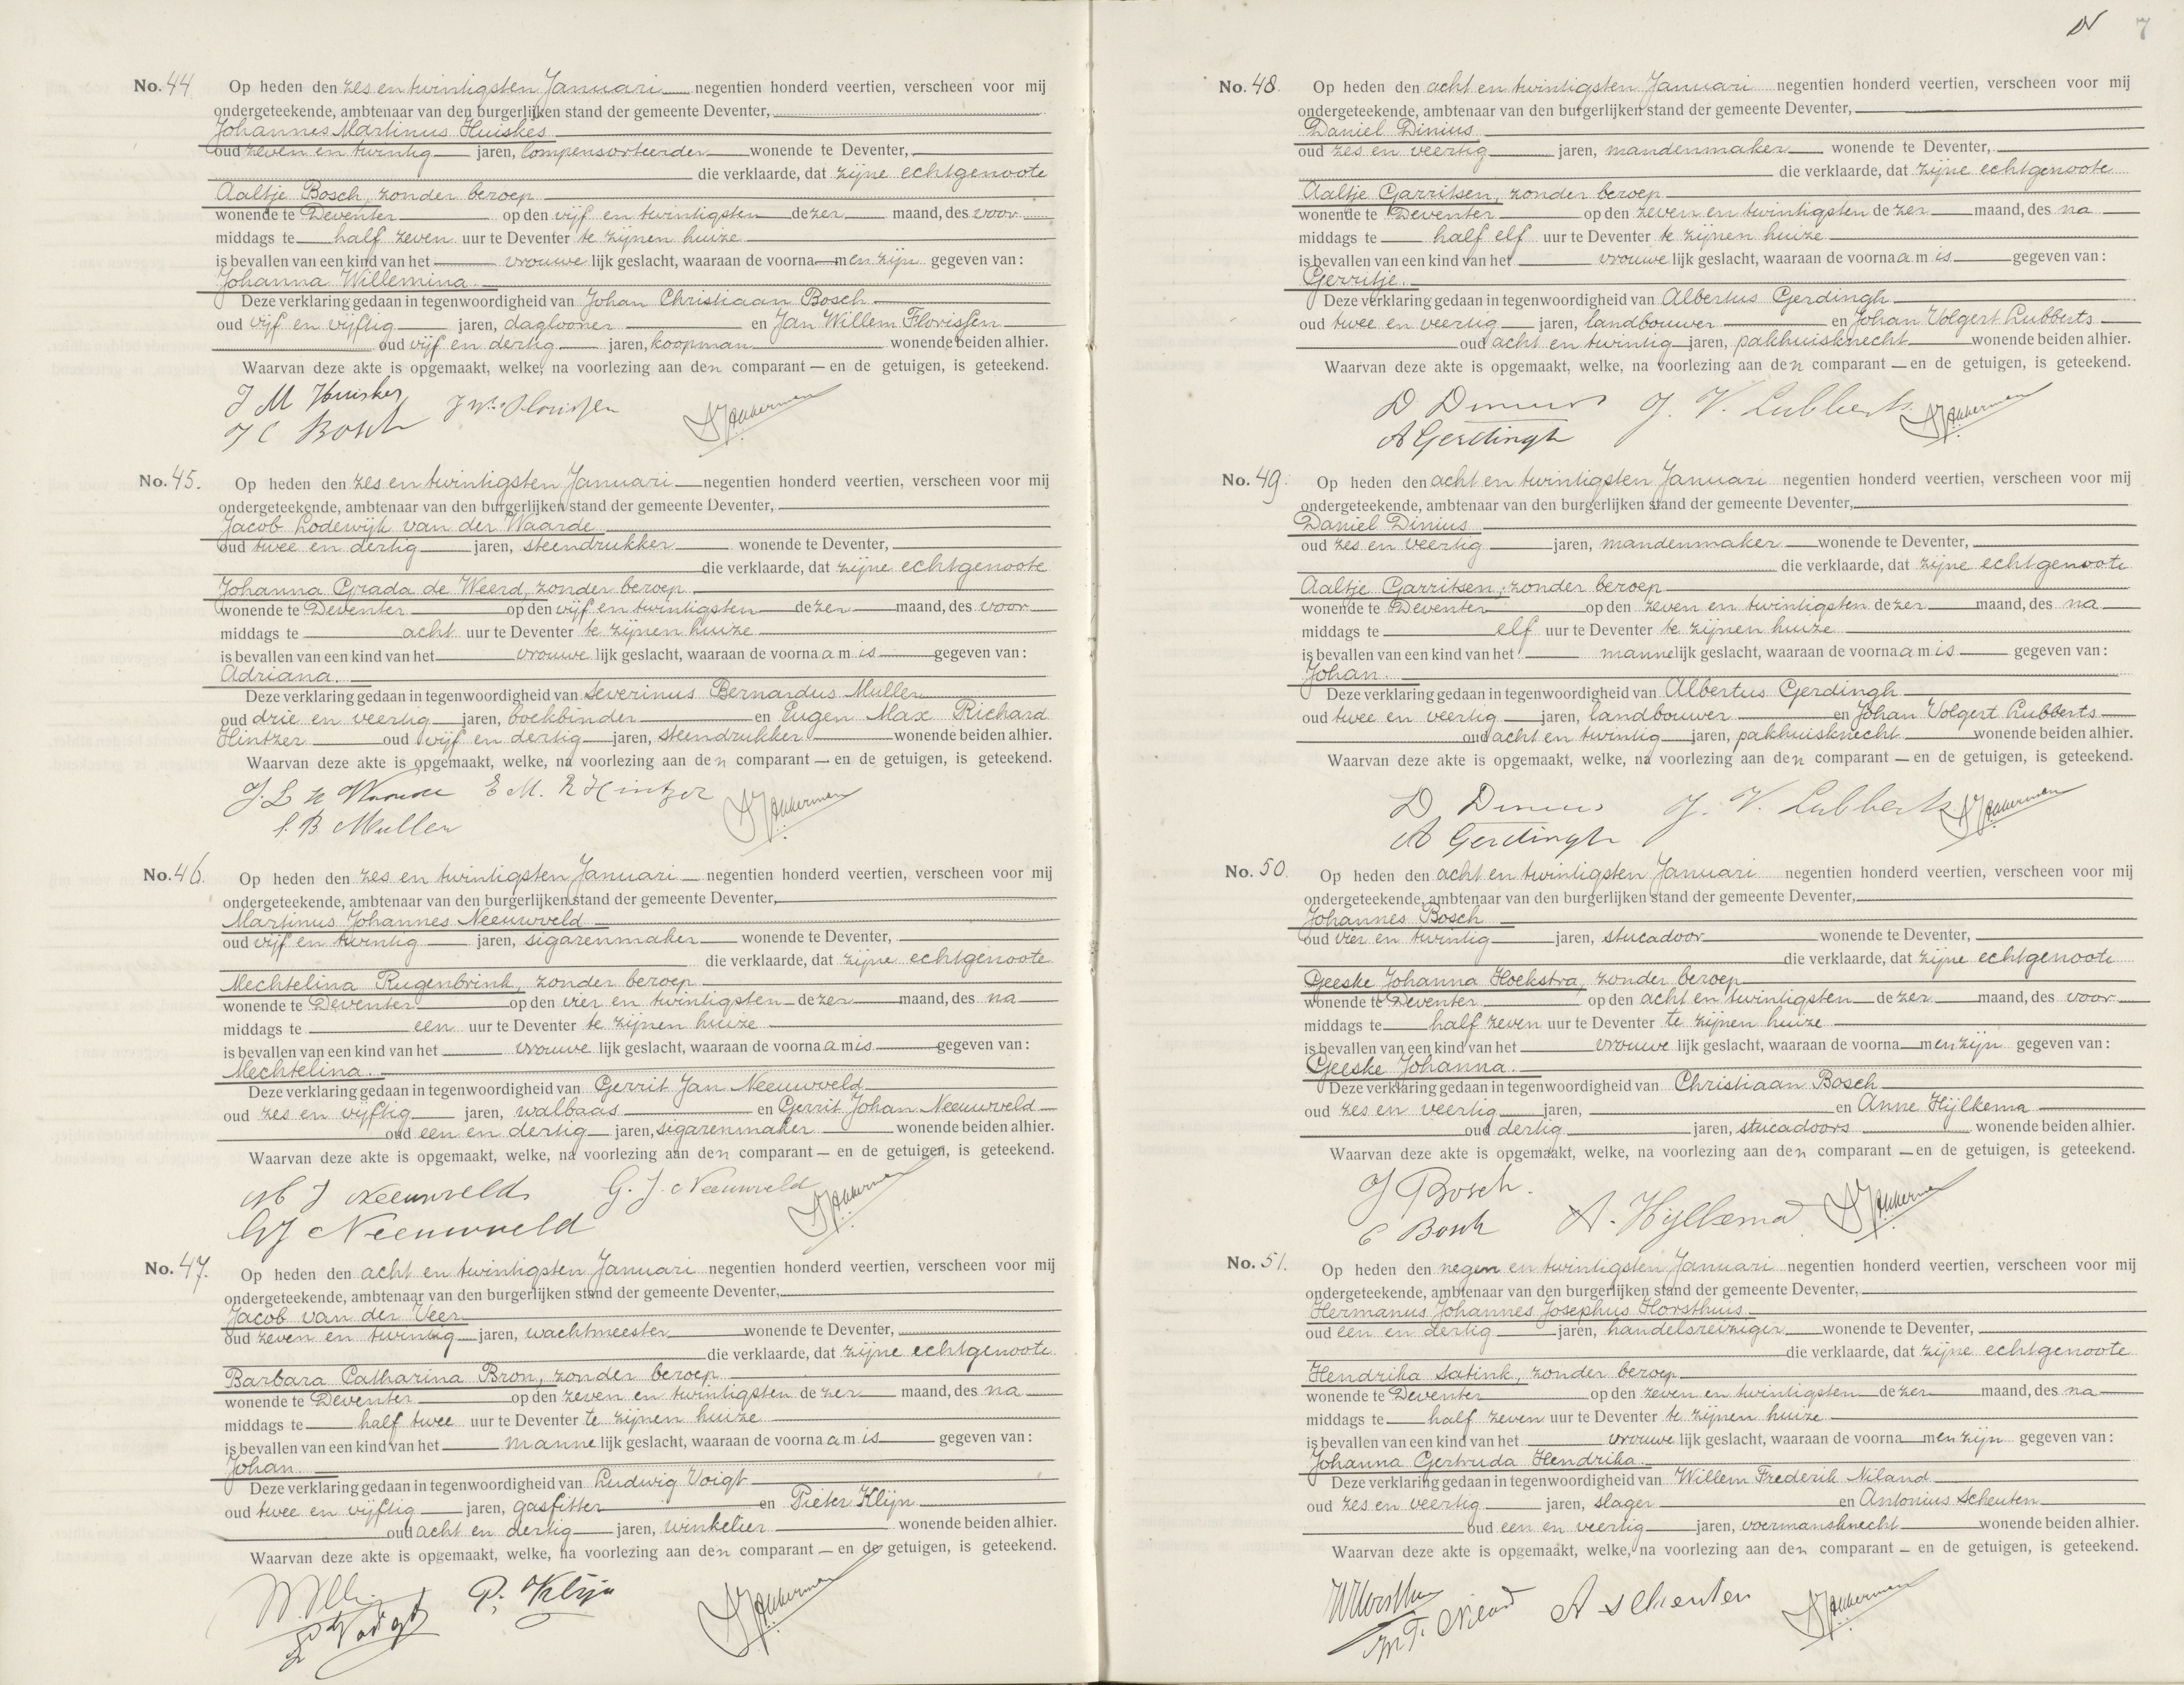 No. 44. Op heden den zes en twintigsten Januari negentien honderd veertien, verscheen voor mij
ondergeteekende, ambtenaar van den burgerlijken stand der gemeente Deventer,
Johannes Martinus Huiskes
oud zeven en twintig jaren, lompensorteerder wonende te Deventer,
die verklaarde, dat zijne echtgenoote
Aaltje Bosch, zonder beroep
wonende te Deventer op den vijf en twintigsten dezer maand, des voor
middags te half zeven uur te Deventer te zijnen huize
is bevallen van een kind van het vrouwelijk geslacht, waaraan de voornamen zijn gegeven van:
Johanna Willemina.
Deze verklaring gedaan in tegenwoordigheid van Johan Christiaan Bosch
oud vijf en vijftig jaren, daglooner en Jan Willem Florissen
oud vijf en dertig jaren, koopman wonende beiden alhier.
Waarvan deze akte is opgemaakt, welke, na voorlezing aan den comparant en de getuigen, is geteekend.
J M Huiskes JW Florissen
J C Bosch
No. 45. Op heden den zes en twintigsten Januari negentien honderd veertien, verscheen voor mij
ondergeteekende, ambtenaar van den burgerlijken stand der gemeente Deventer,
Jacob Lodewijk van der Waarde
oud twee en dertig jaren, steendrukker wonende te Deventer,
die verklaarde, dat zijne echtgenoote
Johanna Grada de Weerd, zonder beroep
wonende te Deventer op den vijf en twintigsten dezer maand, des voor
middags te acht uur te Deventer te zijnen huize
is bevallen van een kind van het vrouwelijk geslacht, waaraan de voornaam is gegeven van:
Adriana.
Deze verklaring gedaan in tegenwoordigheid van Severinus Bernardus Muller
oud drie en veertig jaren, boekbinder en Eugen Max Richard
Hintzer oud vijf en dertig jaren, steendrukker wonende beiden alhier.
Waarvan deze akte is opgemaakt, welke, na voorlezing aan den comparant en de getuigen, is geteekend.
E M. R Hintzer
S. B Muller
No. 46. Op heden den zes en twintigsten Januari negentien honderd veertien, verscheen voor mij
ondergeteekende, ambtenaar van den burgerlijken stand der gemeente Deventer,
Martinus Johannes Neeuwveld
oud vijf en twintig jaren, sigarenmaker wonende te Deventer,
die verklaarde, dat zijne echtgenoote
Mechtelina Rugenbrink, zonder beroep
wonende te Deventer op den vier en twintigsten dezer maand, des na
middags te een uur te Deventer te zijnen huize
is bevallen van een kind van het vrouwelijk geslacht, waaraan de voornaam is gegeven van:
Mechtelina.
Deze verklaring gedaan in tegenwoordigheid van Gerrit Jan Neeuwveld
oud zes en vijftig jaren, walbaas en Gerrit Johan Neeuwveld
oud een en dertig jaren, sigarenmaker wonende beiden alhier.
Waarvan deze akte is opgemaakt, welke, na voorlezing aan den comparant en de getuigen, is geteekend.
M J Neeuwveld G. J. Neeuwveld
GJ Neeuwveld
No. 47. Op heden den acht en twintigsten Januari negentien honderd veertien, verscheen voor mij
ondergeteekende, ambtenaar van den burgerlijken stand der gemeente Deventer,
Jacob van der Veer
oud zeven en twintig jaren, wachtmeester wonende te Deventer,
die verklaarde, dat zijne echtgenoote
Barbara Catharina Bron, zonder beroep
wonende te Deventer op den zeven en twintigsten dezer maand, des na
middags te half twee uur te Deventer te zijnen huize
is bevallen van een kind van het mannelijk geslacht, waaraan de voornaam is gegeven van:
Johan
Deze verklaring gedaan in tegenwoordigheid van Ludwig Voigt
oud twee en vijftig jaren, gasfitter en Pieter Klijn
oud acht en dertig jaren, winkelier wonende beiden alhier.
Waarvan deze akte is opgemaakt, welke, na voorlezing aan den comparant en de getuigen, is geteekend.
P. Klijn
Voigt
7
No. 48. Op heden den acht en twintigsten Januari negentien honderd veertien, verscheen voor mij
ondergeteekende, ambtenaar van den burgerlijken stand der gemeente Deventer,
Daniel Dinius
oud zes en veertig jaren, mandenmaker wonende te Deventer,
die verklaarde, dat zijne echtgenoote
Aaltje Garritsen, zonder beroep
wonende te Deventer op den zeven en twintigsten dezer maand, des na
middags te half elf uur te Deventer te zijnen huize
is bevallen van een kind van het vrouwelijk geslacht, waaraan de voornaam is gegeven van:
Gerritje.
Deze verklaring gedaan in tegenwoordigheid van Albertus Gerdingh
oud twee en veertig jaren, landbouwer en Johan Volgert Lubberts
oud acht en twintig jaren, pakhuisknecht wonende beiden alhier.
Waarvan deze akte is opgemaakt, welke, na voorlezing aan den comparant en de getuigen, is geteekend.
D Dinius J. V. Lubberts
A Gerdingh
No. 49. Op heden den acht en twintigsten Januari negentien honderd veertien, verscheen voor mij
ondergeteekende, ambtenaar van den burgerlijken stand der gemeente Deventer,
Daniel Dinius
oud zes en veertig jaren, mandenmaker wonende te Deventer,
die verklaarde, dat zijne echtgenoote
Aaltje Garritsen, zonder beroep
wonende te Deventer op den zeven en twintigsten dezer maand, des na
middags te elf uur te Deventer te zijnen huize
is bevallen van een kind van het mannelijk geslacht, waaraan de voornaam is gegeven van:
Johan.
Deze verklaring gedaan in tegenwoordigheid van Albertus Gerdingh
oud twee en veertig jaren, landbouwer en Johan Volgert Lubberts
oud acht en twintig jaren, pakhuisknecht wonende beiden alhier.
Waarvan deze akte is opgemaakt, welke, na voorlezing aan den comparant en de getuigen, is geteekend.
D Dinius J. V. Lubberts
A Gerdingh
No. 50. Op heden den acht en twintigsten Januari negentien honderd veertien, verscheen voor mij
ondergeteekende, ambtenaar van den burgerlijken stand der gemeente Deventer,
Johannes Bosch
oud vier en twintig jaren, stucadoor wonende te Deventer,
die verklaarde, dat zijne echtgenoote
Geeske Johanna Hoekstra, zonder beroep
wonende te Deventer op den acht en twintigsten dezer maand, des voor
middags te half zeven uur te Deventer te zijnen huize
is bevallen van een kind van het vrouwelijk geslacht, waaraan de voornamen zijn gegeven van:
Geeske Johanna.
Deze verklaring gedaan in tegenwoordigheid van Christiaan Bosch
oud zes en veertig jaren, en Anne Hijlkema
oud dertig jaren, stucadoors wonende beiden alhier.
Waarvan deze akte is opgemaakt, welke, na voorlezing aan den comparant en de getuigen, is geteekend.
J Bosch.
C Bosch A. Hijlkema
No. 51. Op heden den negen en twintigsten Januari negentien honderd veertien, verscheen voor mij
ondergeteekende, ambtenaar van den burgerlijken stand der gemeente Deventer,
Hermanus Johannes Josephus Horsthuis
oud een en dertig jaren, handelsreiziger wonende te Deventer,
die verklaarde, dat zijne echtgenoote
Hendrika Satink, zonder beroep
wonende te Deventer op den zeven en twintigsten dezer maand, des na
middags te half zeven uur te Deventer te zijnen huize
is bevallen van een kind van het vrouwelijk geslacht, waaraan de voornamen zijn gegeven van:
Johanna Gertruda Hendrika.
Deze verklaring gedaan in tegenwoordigheid van Willem Frederik Niland
oud zes en veertig jaren, slager en Antonius Scheuten
oud een en veertig jaren, voermansknecht wonende beiden alhier.
Waarvan deze akte is opgemaakt, welke, na voorlezing aan den comparant en de getuigen, is geteekend.
A Scheuten